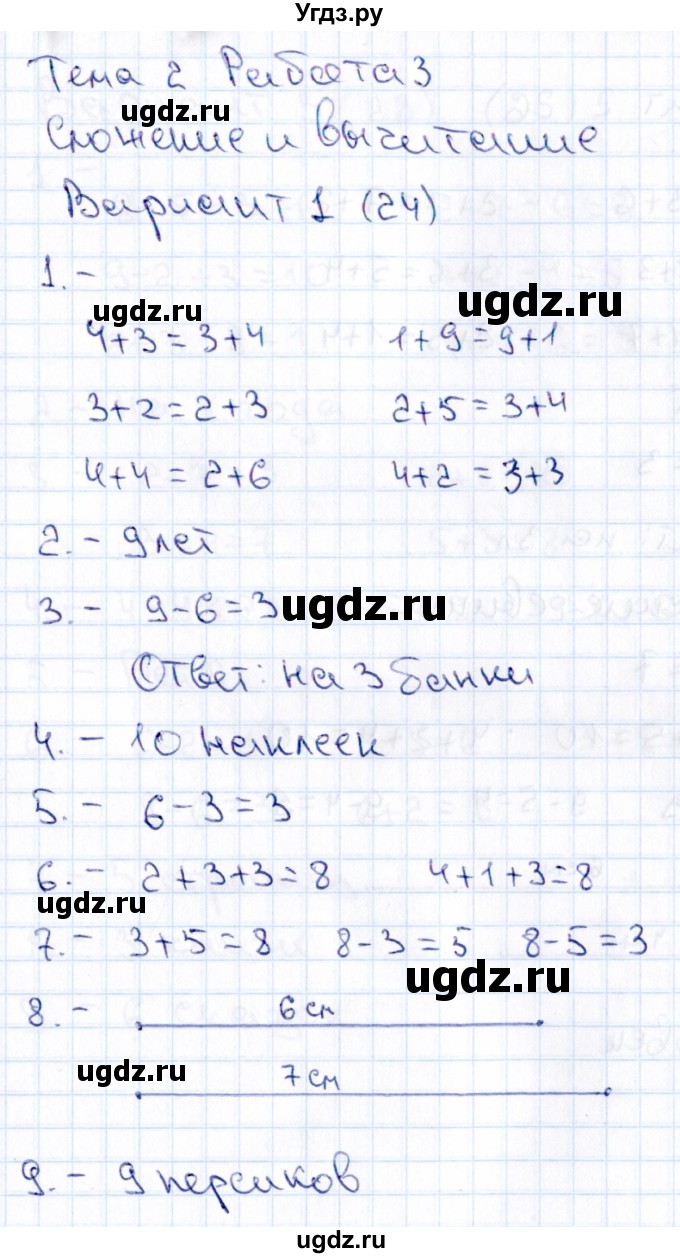 Угдз.ру
Тема 2 Работа 3
ugdz.ru
Сложение и вычитание
Вариант 1 (24)
1. –
ugdz.ru ugdz.ru
4+3=3+4 1+9=9+1
3+2=2+3 2+5=3+4
4+4=2+6 4+2=3+3
2. – 9 лет
3. – 9-6=3 ugdz.ru
Ответ: на 3 банки
4. – 10 наклеек
5. – 6-3=3
6. – 2+3+3=8 4+1+3=8
ugdz.ru
7. – 3+5=8 8-3=5 8-5=3
ugdz.ru
8. – 6 см
ugdz.ru 7 см
9. – 9 персиков
ugdz.ru